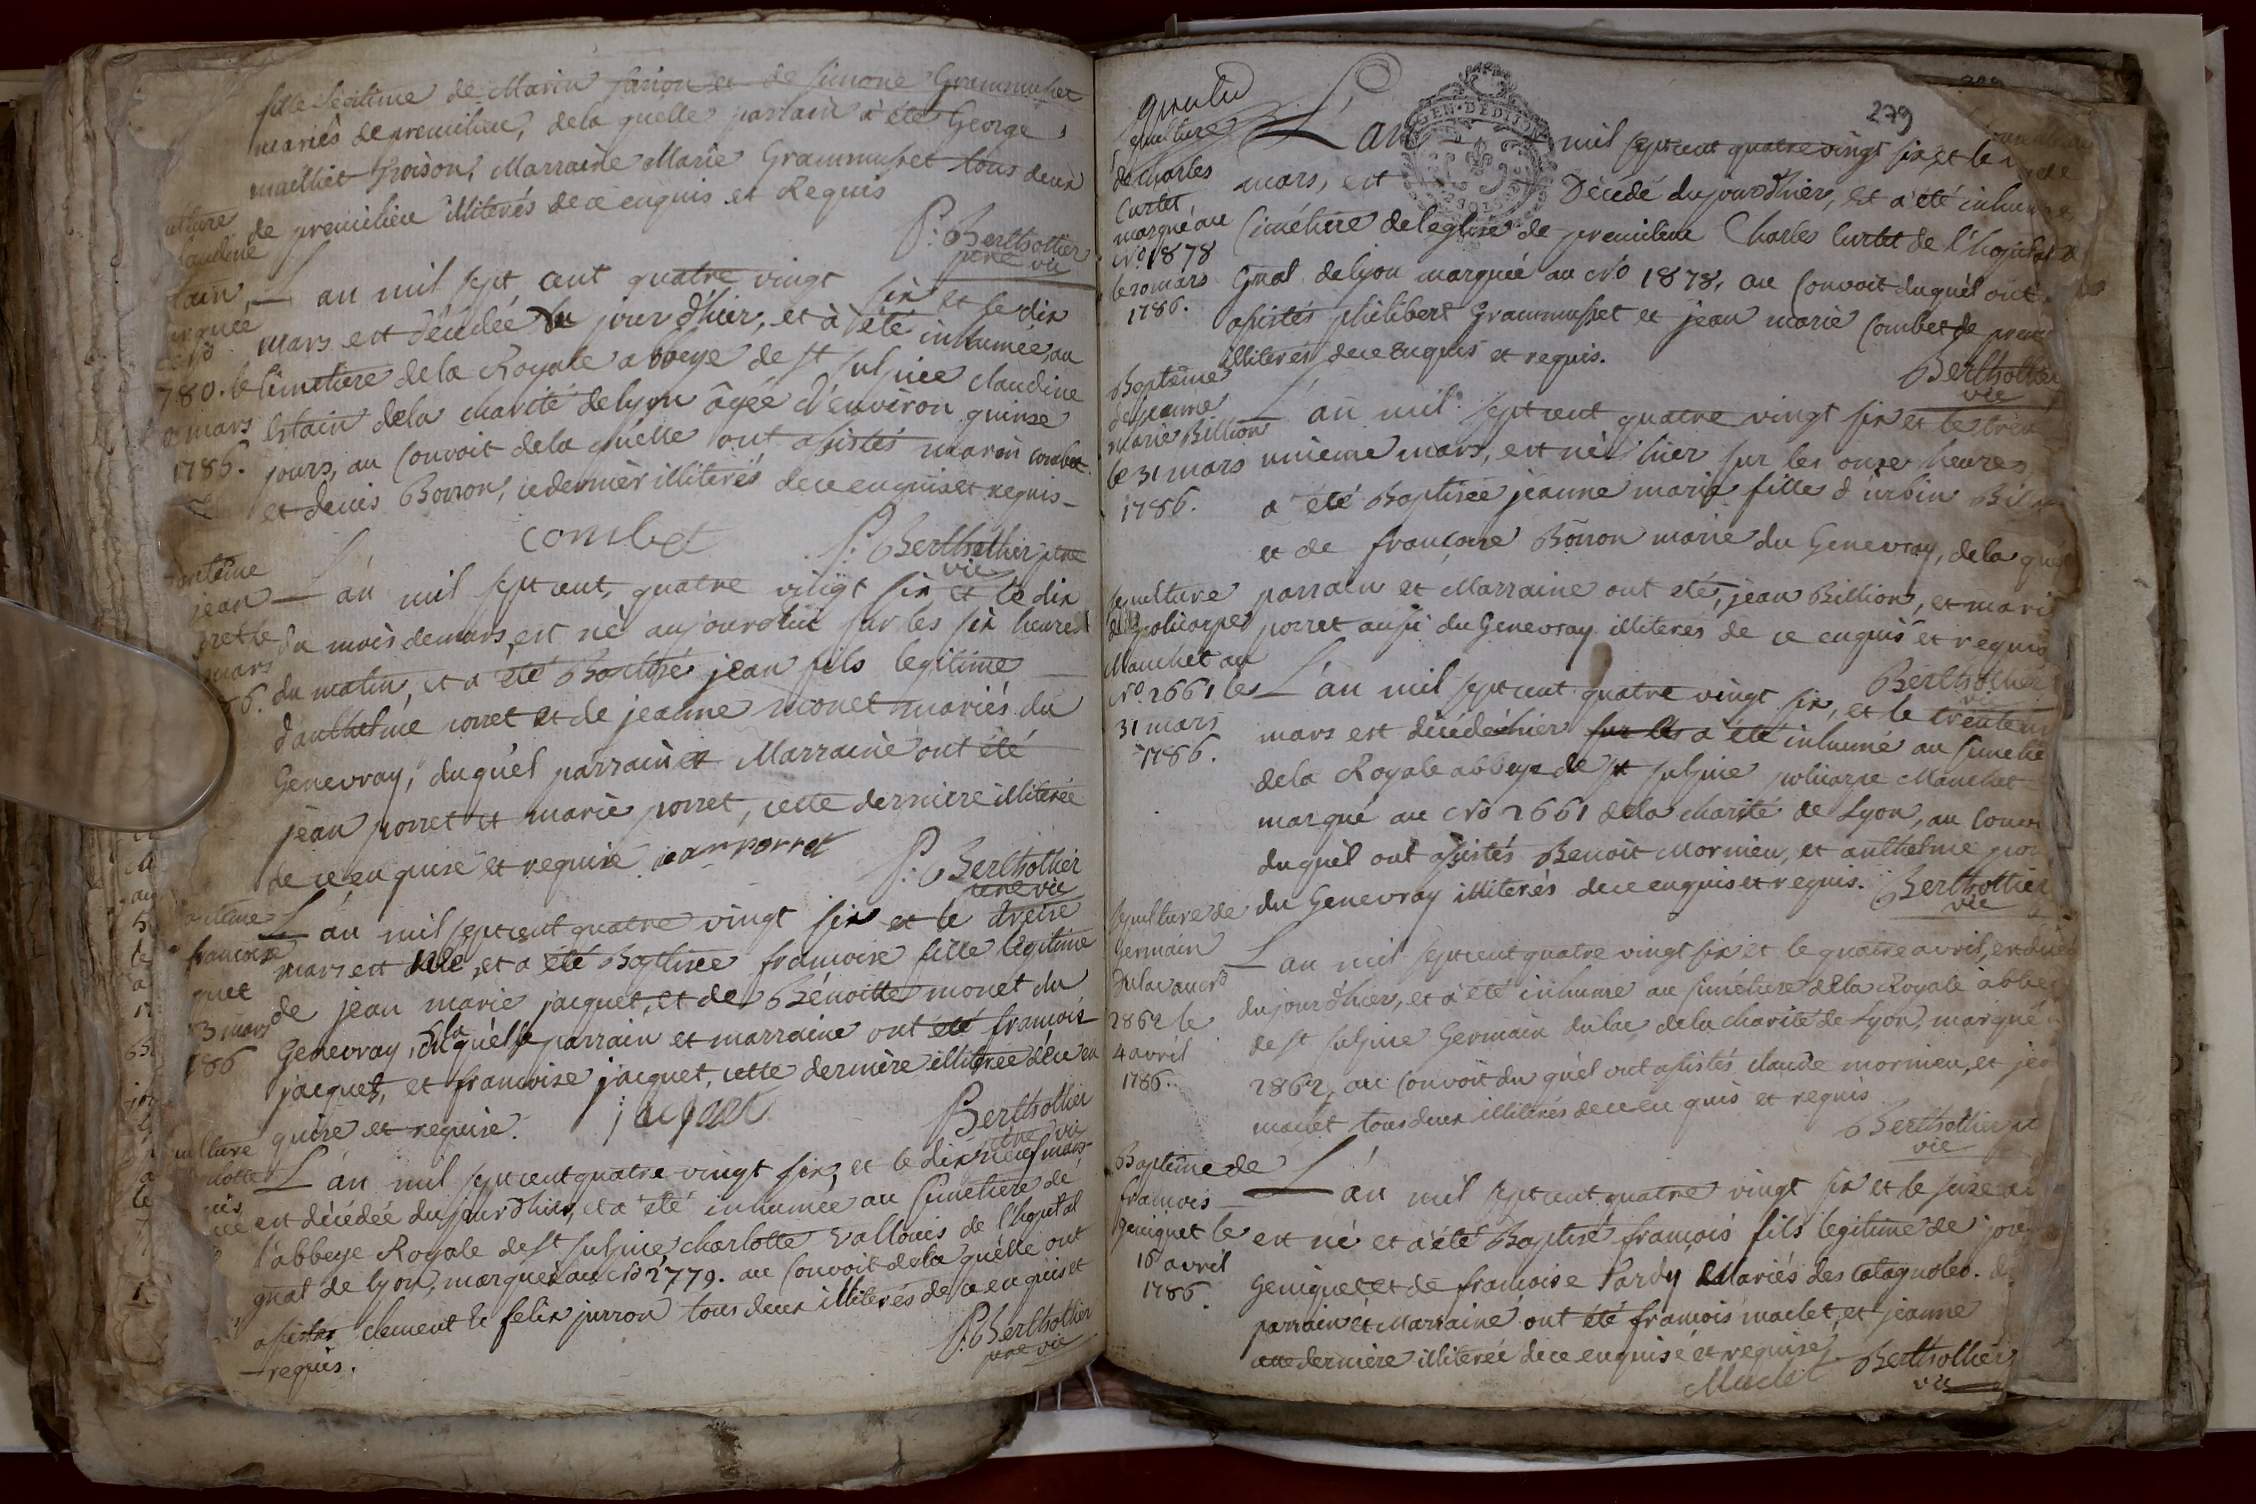 fille legitime de Marin et de Simone Grammusset
mariés de premilieu, dela quelle parrain à été George
Marraine Marie Grammusset tous deux
de premilieu illiterés de ce enquis et Requis
P. Berthollier
ptre vic
L'an mil sept cent quatre vingt six et le dix
mars est décédée du jour d'hier, et à été inhumée, au
Cimetiere dela Royale abbeye de st sulpice claudine
dela charité de lyon âgée d'environ quinse
jours, au Convoit dela quelle ont assistés marin combet
et denis Borron, ce dernièr illiterés de ce enquis et requis
combet
P. Berthollier ptre
vic
780. le
mars
1786.
jean
mars
L'an mil sept cent, quatre vingt six et le dix
du mois de mars, est né aujourdhui sur les six heures
du matin, et a été Baptisé jean fils legitime
d'anthelme porret et de jeanne monet mariés du
Genevray, duquel parrain et Marraine ont été
jean porret et marie porret, cette derniere illiterée
de ce enquise et requise jean porret
P. Berthollier
ptre vic
L'an mil sept cent quatre vingt six et le treise
mars est née, et a été Baptisee francoise fille légitime
de jean marie jacquet, et de Bénoitte monet du
Genevray, dela quelle parrain et marraine ont été francois
jacquet, et francoise jacquet, cette dernière illiterée de ce en
quise et requise. jacquet
Berthollier
ptre vic
francoise
3 mars
L'an mil sept cent quatre vingt six, et le dix neuf mars
est décédée du jour d'hier, et a été inhumée au Cimetiere de
l'abbeye Royale de st sulpice charlotte vallouis de l'hopital
gnal de lyon, marquée au No 2779. au Convoit dela quelle ont
assistés clement et felix jurron tous deux illiterés de ce enquis et
requis.
P. Berthollier
ptre vic
279
GEN · DE DIJON
Sepulture
de charles
Curtet
marqué, au
No. 1878
le 20 mars
1786.
L'an mil sept cent quatre vingt six, et le
mars, est Décédé du jour d'hier, et a été inhumé
Cimétiere de l'eglise de premilieu Charles Curtet de l'hopital
Gnal de lyon marquée au No 1878, au Convoit duquel ont
assistés philibert Grammusset et jean marie Combet de prem
illiterés de ce enquis et requis.
Berthollier
vic
Baptême
de jeanne
marie Billion
le 31 mars
1786.
L'an mil sept cent quatre vingt six et le tren
unième mars, est né hier sur les onze heures
a été Baptisée jeanne marie fille d'urbin Bil
et de francoise Borron marie du Genevray, dela que
parrain et Marraine ont été, jean Billion, et mari
porret aussi du Genevray illiterés de ce enquis et requis
Berthollier
vic
sepulture
de policarpe
Manchet au
No. 2661 le
31 mars
1786.
L'an mil sept cent quatre vingt six, et le trente un
mars est décédé hier sur les a été inhumé au Cimetie
dela Royale abbeye de st sulpice policarpe Manchet
marqué au No 2661 dela charité de Lyon, au Conv
duquel ont assistés Benoit Mornieu, et anthelme por
du Genevray illiterés de ce enquis et requis. Berthollier
vic
sepulture de
Germain
Dulac au No
2862 le
4 avril
1786.
L'an mil sept cent quatre vingt six et le quatre avril, est décé
du jour d'hier, et a été inhumé au Cimétiere dela Royale abbe
de st sulpice Germain dulac dela charité de Lyon, marqué
2862, au Convoit du quel ont assistés claude mornieu, et jea
maclet tous deux illiterés de ce enquis et requis
Berthollier
vic
Baptême de
francois
Geniquet le
16 avril
1786.
L'an mil sept cent quatre vingt six et le seize
est né et a été Baptisé francois fils legitime de
Geniquet et de francoise Pardy Mariés des Catagnoles.
parrain et Marraine ont été francois maclet, et jeanne
cette dernière illiterée de ce enquise et requise
Maclet
Berthollier
vic